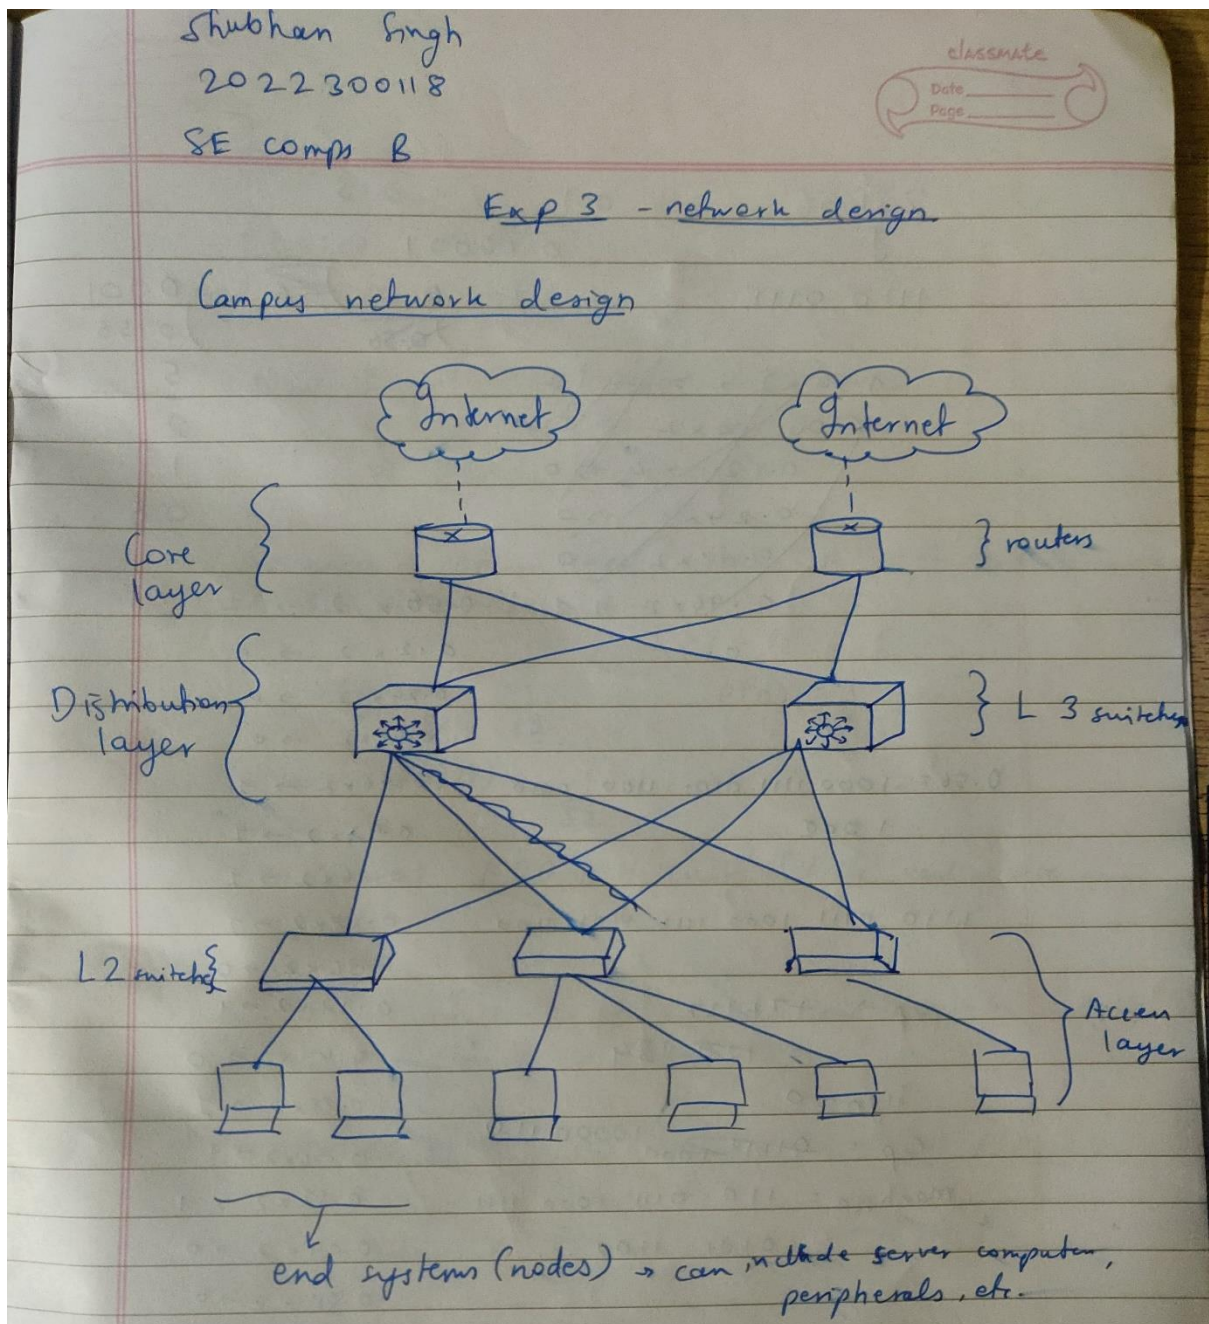 Shubhan Singh
2022300118
SE comps B
classmate
Date
Page
Exp 3 - network design
Campus network design
Internet
Internet
Core
layer
routers
Distribution
layer
L 3 switches
L2 switches
Access
layer
end systems (nodes) → can include server computers,
peripherals, etc.